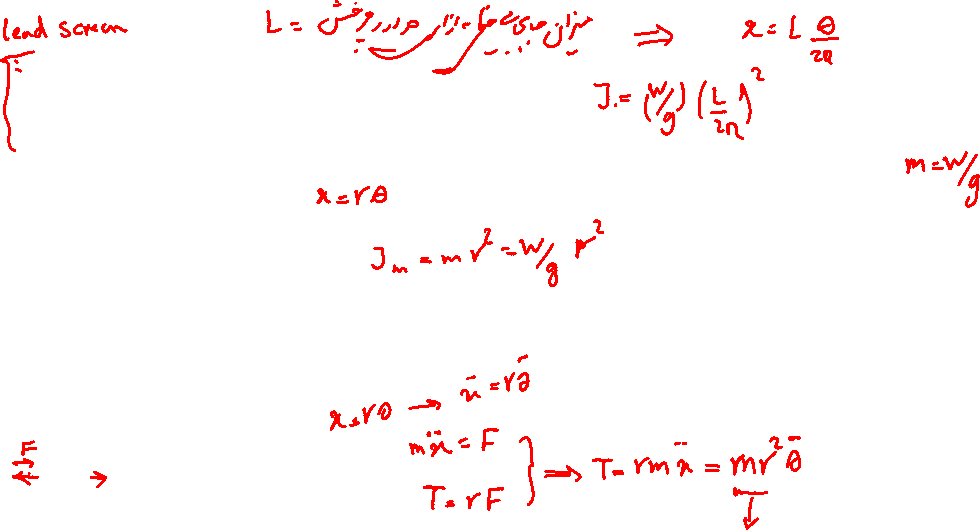 lead screw L = میزان جابجایی در هر دور چرخش ⟹ x = L θ/2π
J = (W/g) (L/2π)²
m = W/g
x = rθ
J_m = m r² = W/g r²
x = rθ → ẍ = rθ̈
mẍ = F
F
T = rF ⟹ T = rmẍ = mr²θ̈